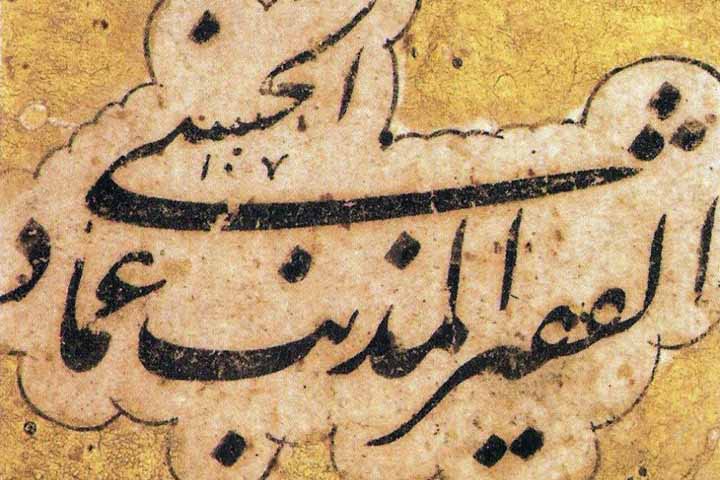 الفقیر المذنب عماد
الحسنی
۱۰۷